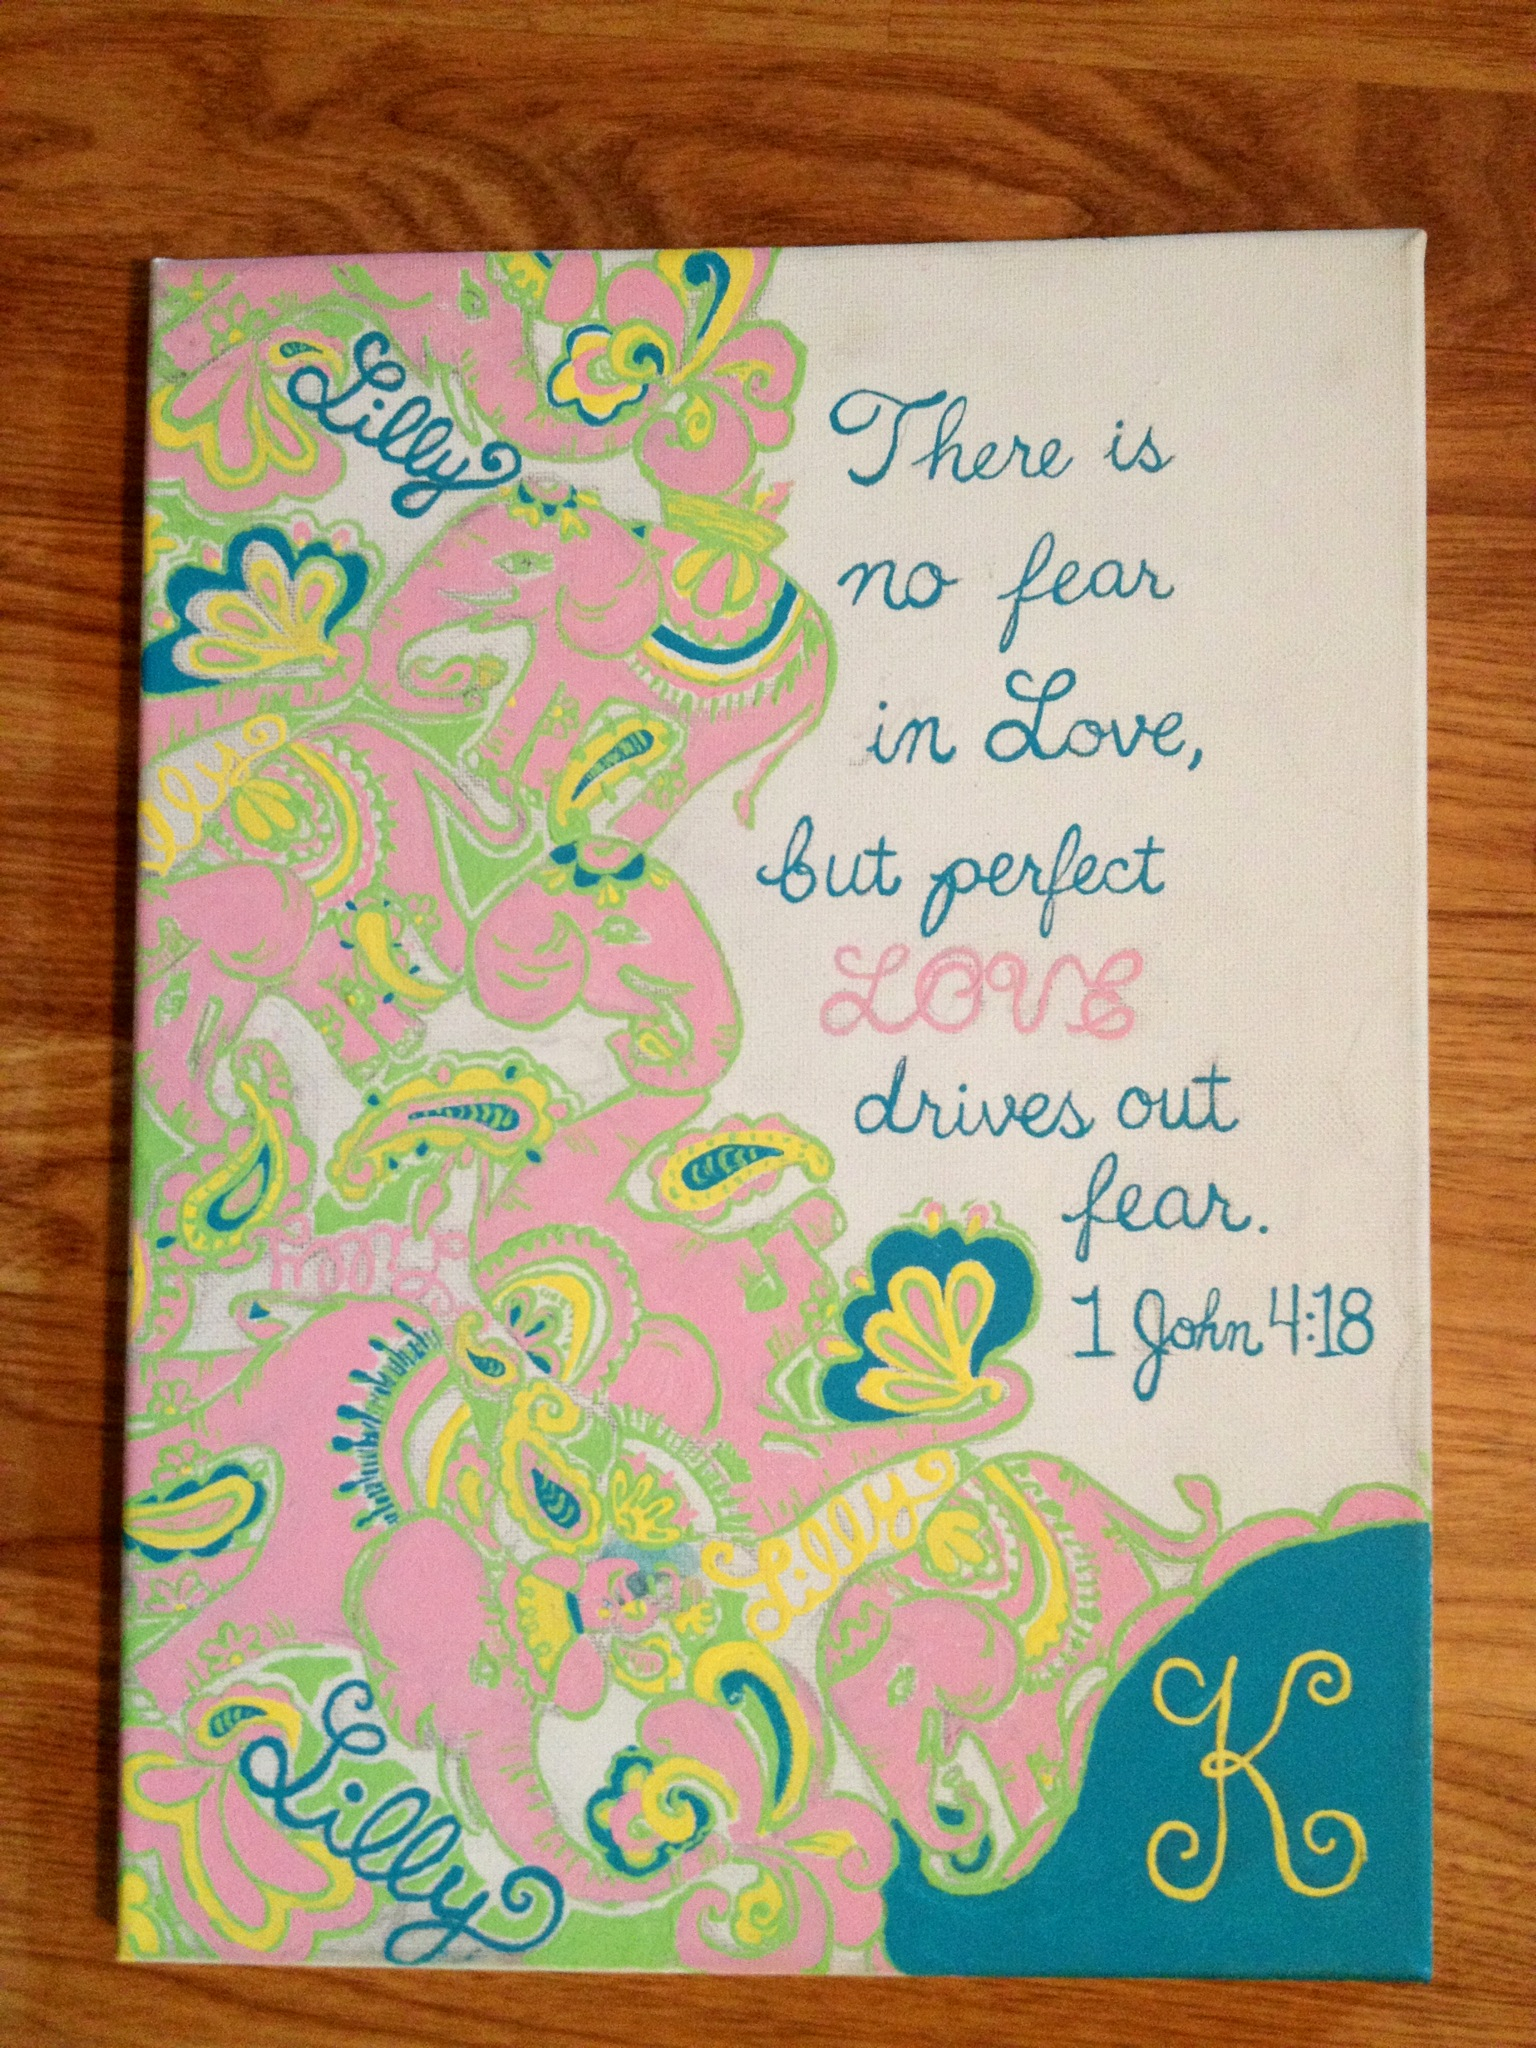 Lilly
There is
no fear
in Love,
but perfect
LOVE
drives out
fear.
1 John 4:18
Lilly
Lilly
Lilly
K
Lilly